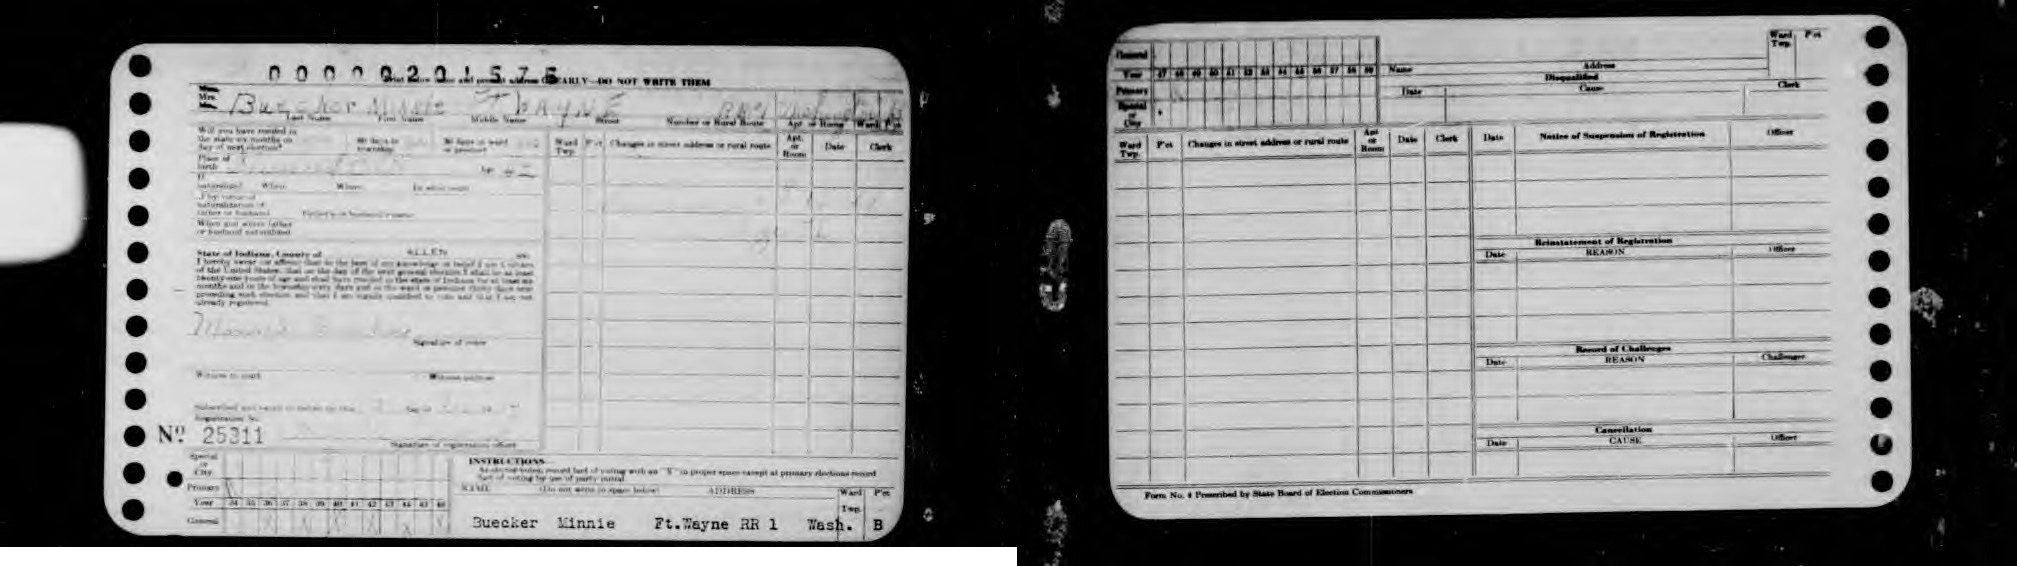 0000201575
CLEARLY—DO NOT WRITE THEM
Mrs. Buecker Minnie Ft Wayne RR1 Wash B
Last Name First Name Middle Name Street Number or Rural Route Apt. or Room Ward Pct
Will you have resided in the state six months on day of next election? 60 days in township 30 days in ward or precinct
Ward Twp. P'ct Changes in street address or rural route Apt. or Room Date Clerk
Place of birth Age
If naturalized? When Where In what court
If by virtue of naturalization of father or husband
When and where father or husband naturalized
State of Indiana, County of ALLEN ss:
I hereby swear (or affirm) that to the best of my knowledge or belief I am a citizen
of the United States, that on the day of the next general election I shall be at least
twenty-one years of age and shall have resided in the state of Indiana for at least six
months and in the township sixty days and in the ward or precinct thirty days next
preceding such election and that I am legally qualified to vote and that I am not
already registered.
Minnie Buecker
Signature of voter
Witness to mark Witness address
Subscribed and sworn to before me this day of
Registration No.
Nº 25311
Signature of registration officer
Special or City
Primary
Year 34 35 36 37 38 39 40 41 42 43 44 45 46
General X X X X X X
INSTRUCTIONS
record fact of voting with an "X" in proper space except at primary elections record
fact of voting by use of party initial.
NAME (Do not write in space below) ADDRESS Ward Twp. P'ct
Buecker Minnie Ft.Wayne RR 1 Wash. B
General
Year 47 48 49 50 51 52 53 54 55 56 57 58 59
Primary
Special or City
Name Address Ward Twp. P'ct
Disqualified
Date Cause Clerk
Ward Twp. P'ct Changes in street address or rural route Apt or Room Date Clerk
Date Notice of Suspension of Registration Officer
Reinstatement of Registration
Date REASON Officer
Record of Challenges
Date REASON Challenger
Cancellation
Date CAUSE Officer
Form No. 4 Prescribed by State Board of Election Commissioners